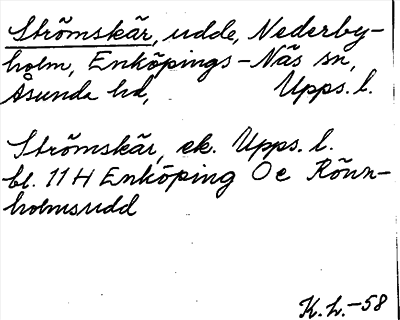 Strömskär, udde, Nederby-
holm, Enköpings-Näs sn,
Åsunda hd, Upps. l.
Strömskär, ek. Upps. l.
bl. 11 H Enköping Oe Rönn-
holmsudd
K. L. -58